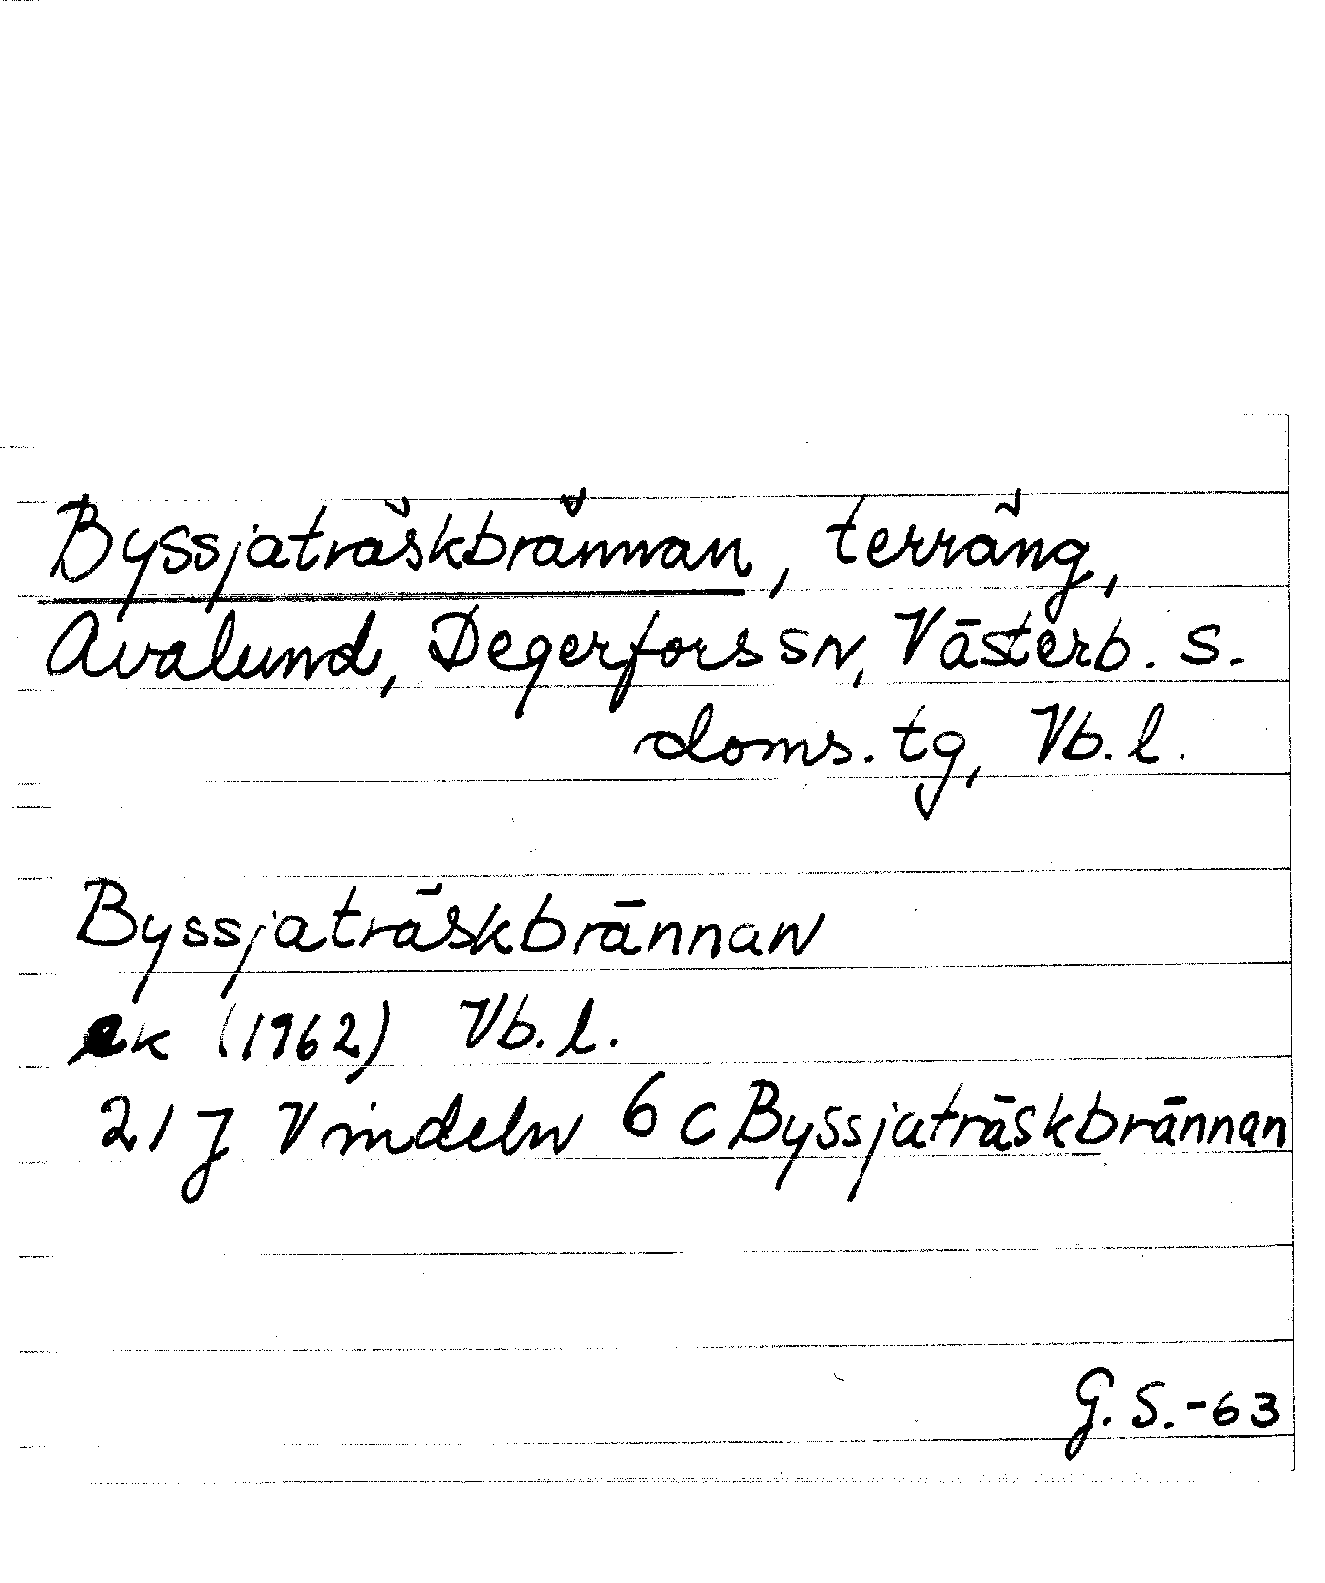 Byssjaträskbrännan, terräng,
Avalund, Degerfors sn, Västerb. s.
doms. tg, Vb. l.
Byssjaträskbrännan
ek (1962) Vb. l.
21 J Vindeln 6 c Byssjaträskbrännan
G. S. -63